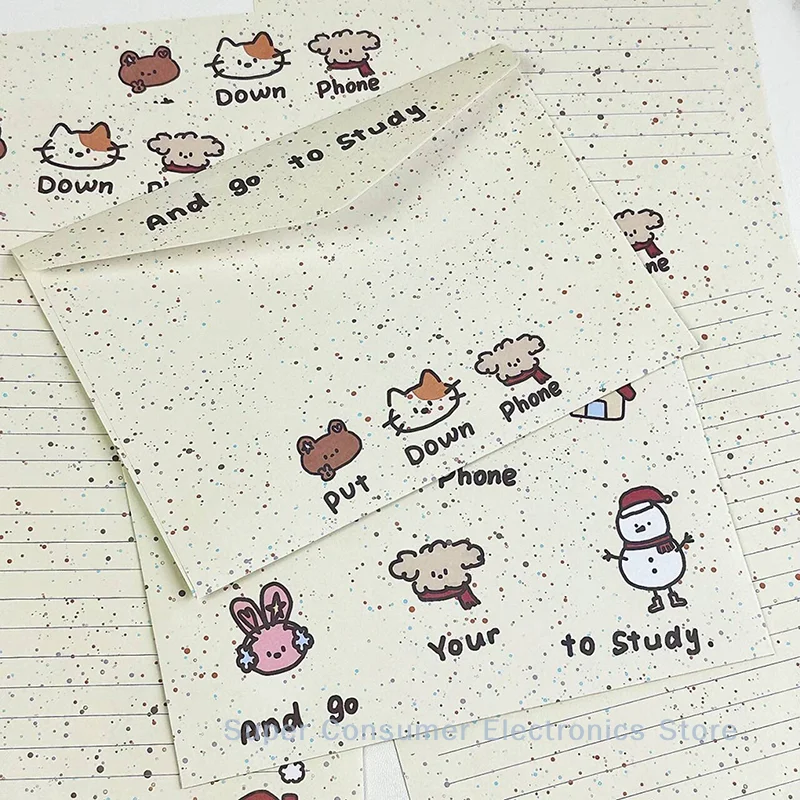 Down Phone
Down
And go to Study.
Put Down Phone
Phone
Your
to Study.
And go
Super Consumer Electronics Store